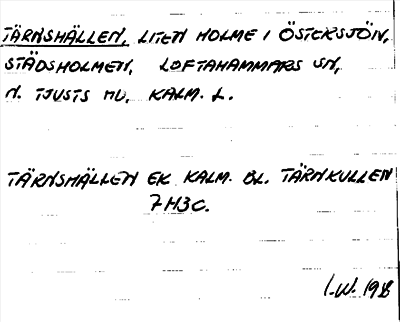 TÄRNSHÄLLEN, LITEN HOLME I ÖSTERSJÖN,
STÄDSHOLMEN, LOFTAHAMMARS SN,
N. TJUSTS HD, KALM. L.
TÄRNSHÄLLEN EK KALM. BL. TÄRNKULLEN
7H3C.
I.W.